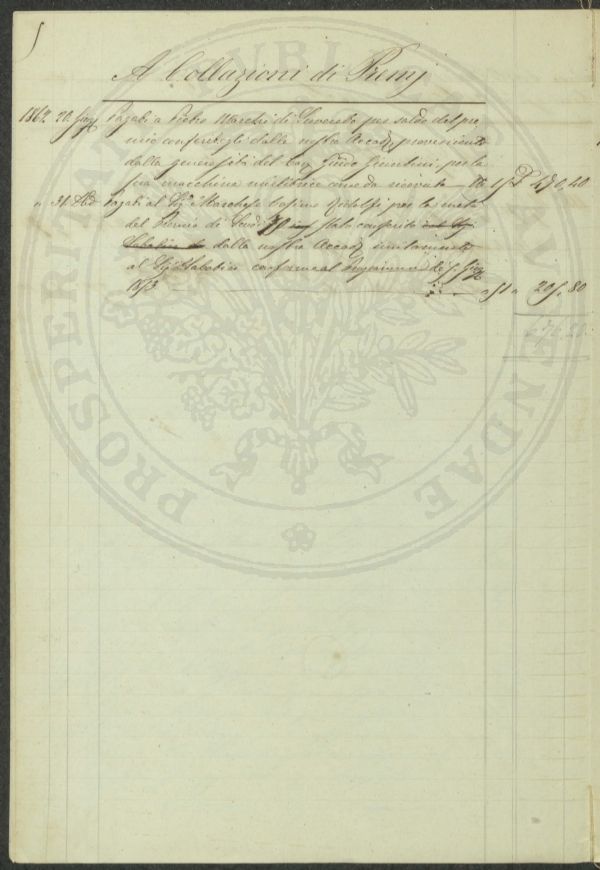 A Collazioni di Premj
1862. 20. Pagati a Pietro Marchi di Suvereto per saldo del pre
mio conferitogli dalla nostra Accad. proveniente
dalla generosità del Cav. Guido Giuntini, per la
sua macchina mietitrice come da ricevuta 470, 40
" 31. Pagati al Sig. Marchese Cosimo Ridolfi per la metà
del Premio di Scudi 70 stato conferito
dalla nostra Accad. unitamente
al Sig. Sabatini conforme al
205. 80
676. 20
PROSPERITATI PUBLICAE AUGENDAE